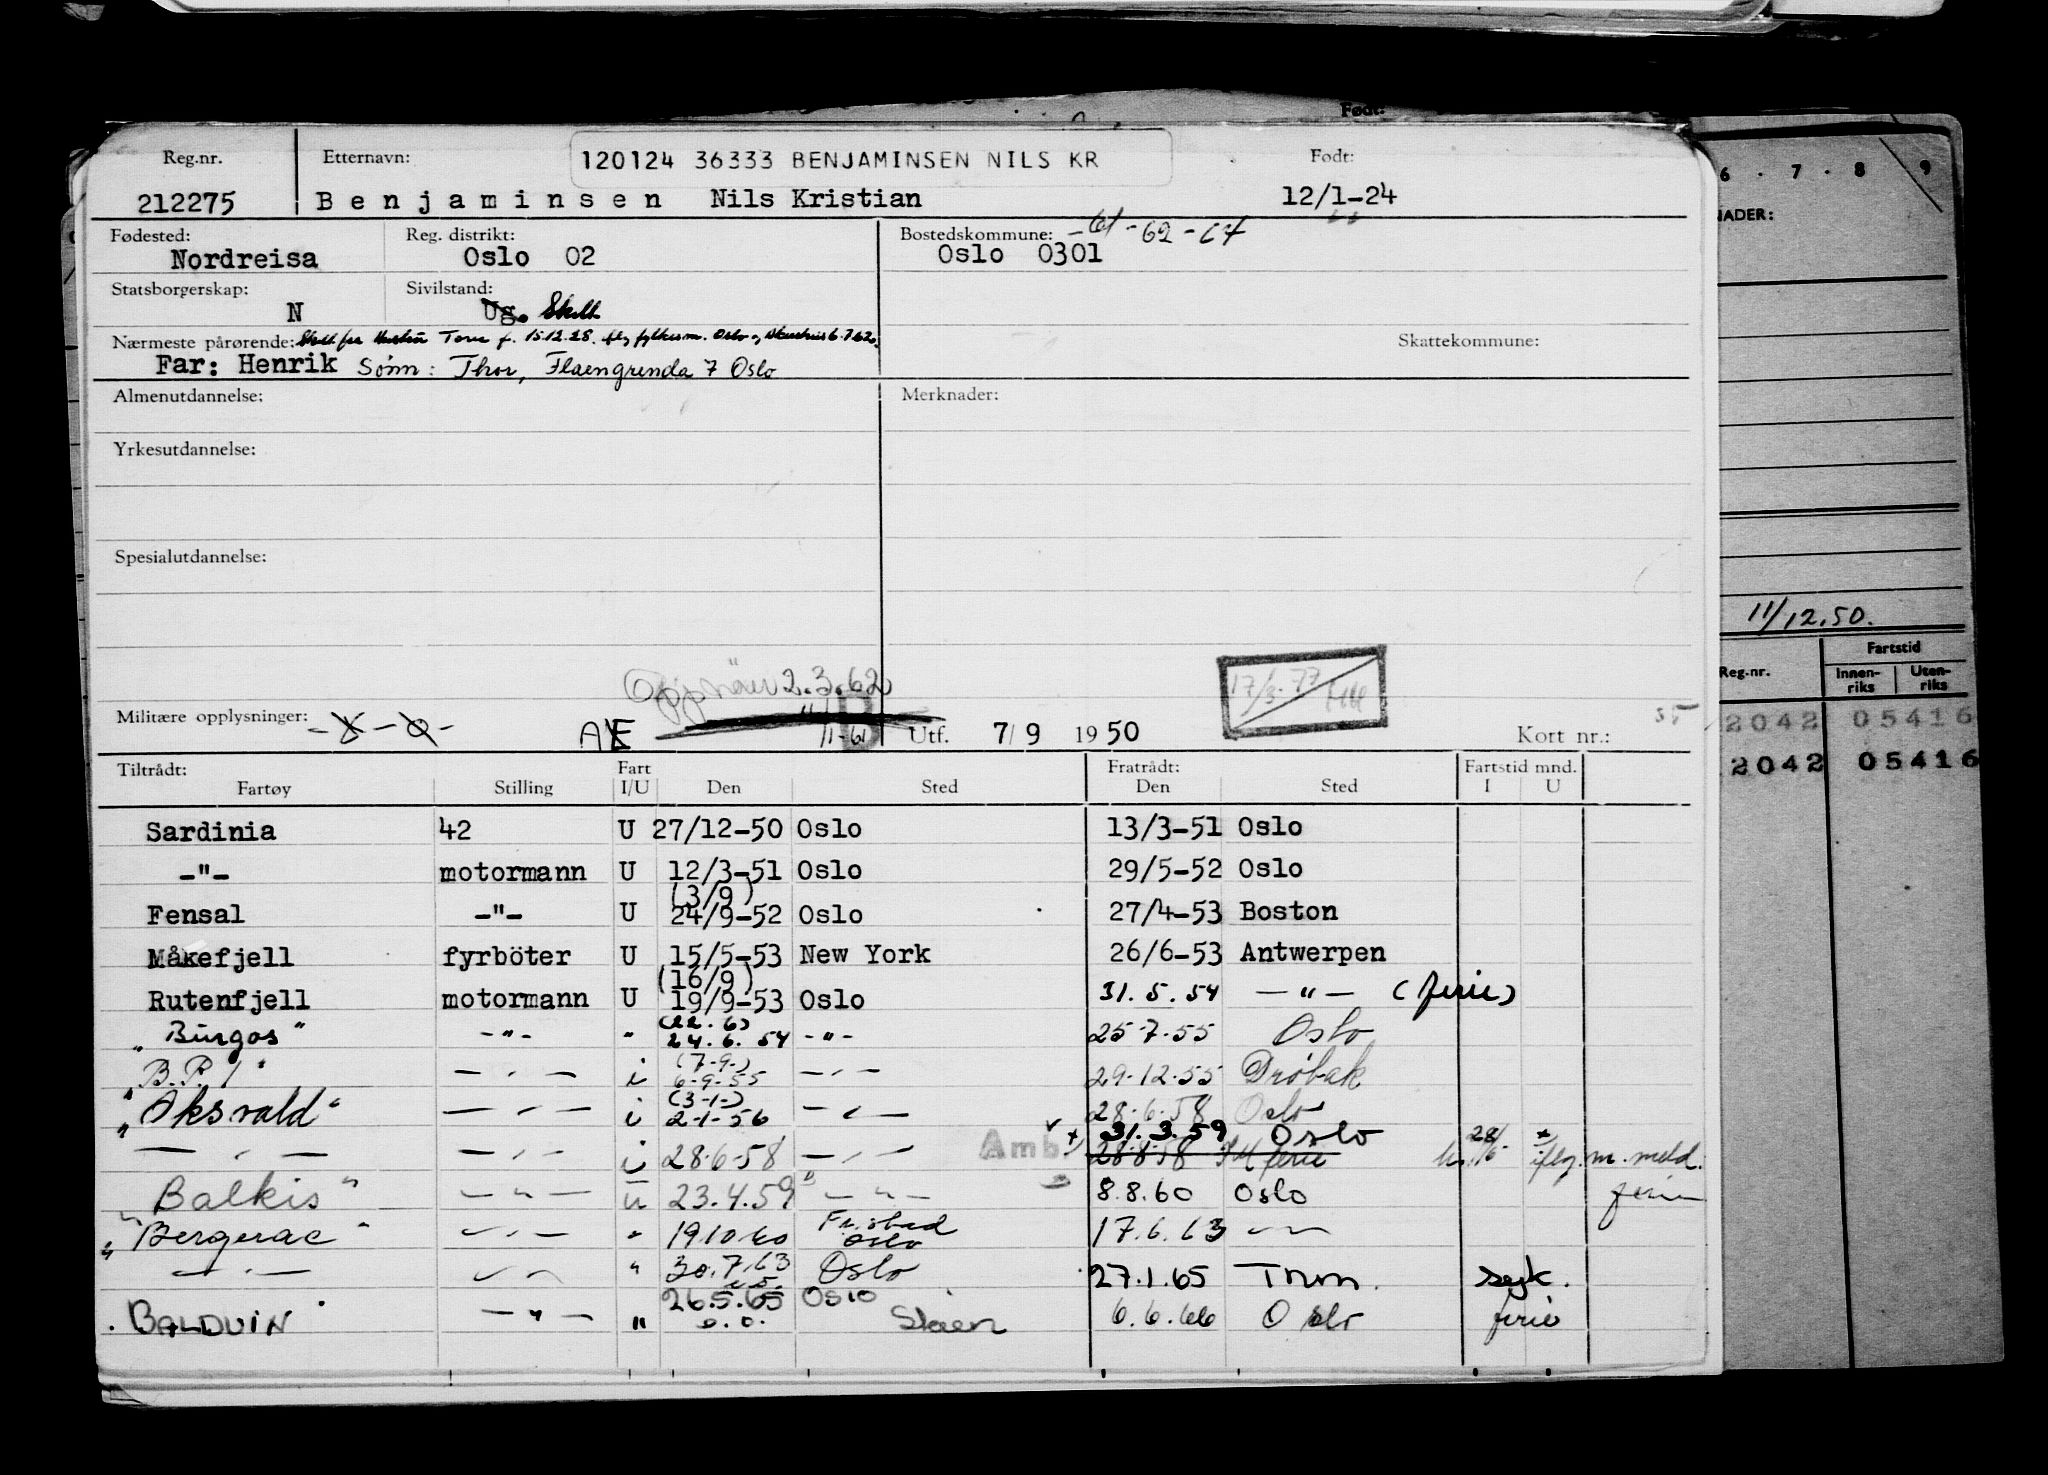 Født:
Reg.nr. Etternavn: 120124 36333 BENJAMINSEN NILS KR Født:
212275 Benjaminsen Nils Kristian 12/1-24
Fødested: Reg. distrikt: Bostedskommune: -61-62-67
Nordreisa Oslo 02 Oslo 0301
Statsborgerskap: Sivilstand:
N Ug. Skilt
Nærmeste pårørende: Skilt fra Hustru Tove f. 15.12.28. flg fylkesm. Oslo og Akershus 6.7.62. Skattekommune:
Far: Henrik Sønn: Thor, Flaengrenda 7 Oslo
Almenutdannelse: Merknader:
Yrkesutdannelse:
Spesialutdannelse:
2.3.62
17/3-77
Militære opplysninger: AE 11-61 B Utf. 7/9 1950 Kort nr.:
Tiltrådt: Fart Fratrådt: Fartstid mnd.
Fartøy Stilling I/U Den Sted Den Sted I U
Sardinia 42 U 27/12-50 Oslo 13/3-51 Oslo
-"- motormann U 12/3-51 Oslo 29/5-52 Oslo
(3/9)
Fensal -"- U 24/9-52 Oslo 27/4-53 Boston
Måkefjell fyrböter U 15/5-53 New York 26/6-53 Antwerpen
(16/9)
Rutenfjell motormann U 19/9-53 Oslo 31.5.54 -"- (ferie)
(22.6)
"Burgos" -"- " 24.6.54 -"- 25-7-55 Oslo
(7-9-)
"B.P. 1" -"- i 6-9-55 -"- 29-12-55 Drøbak
(3-1-)
"Aksvald" -"- i 2-1-56 -"- 28-6-58 Oslo
31.3.59 Oslo
-"- -"- i 28-6-58 -"- Amb. 28-8-58 ferie iflg. m. meld.
"Balkis" -"- u 23.4.59 -"- 8.8.60 Oslo ferie
Fr.stad
"Bergerac" -"- " 19.10.60 Oslo 17.6.63 -"-
-"- -"- " 30.7.63 Oslo 27.1.65 syk.
26.5.65 Oslo
"BALDUIN" -"- " Skien 6.6.66 Oslo ferie
6 . 7 . 8 . 9
NADER:
11/12.50.
Fartstid
Reg.nr. Innen-riks Uten-riks
2042 05416
2042 05416